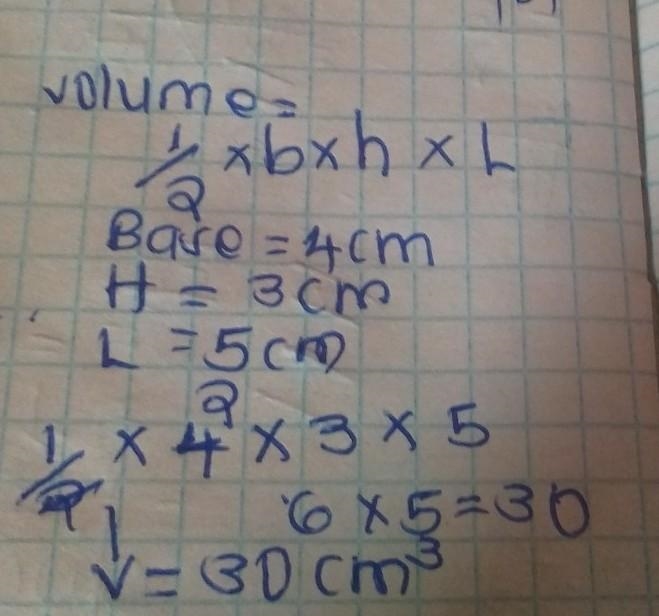 volume =
1/2 × b × h × L
Base = 4cm
H = 3cm
L = 5cm
2
1/2 × 4 × 3 × 5
6 × 5 = 30
V = 30 cm³